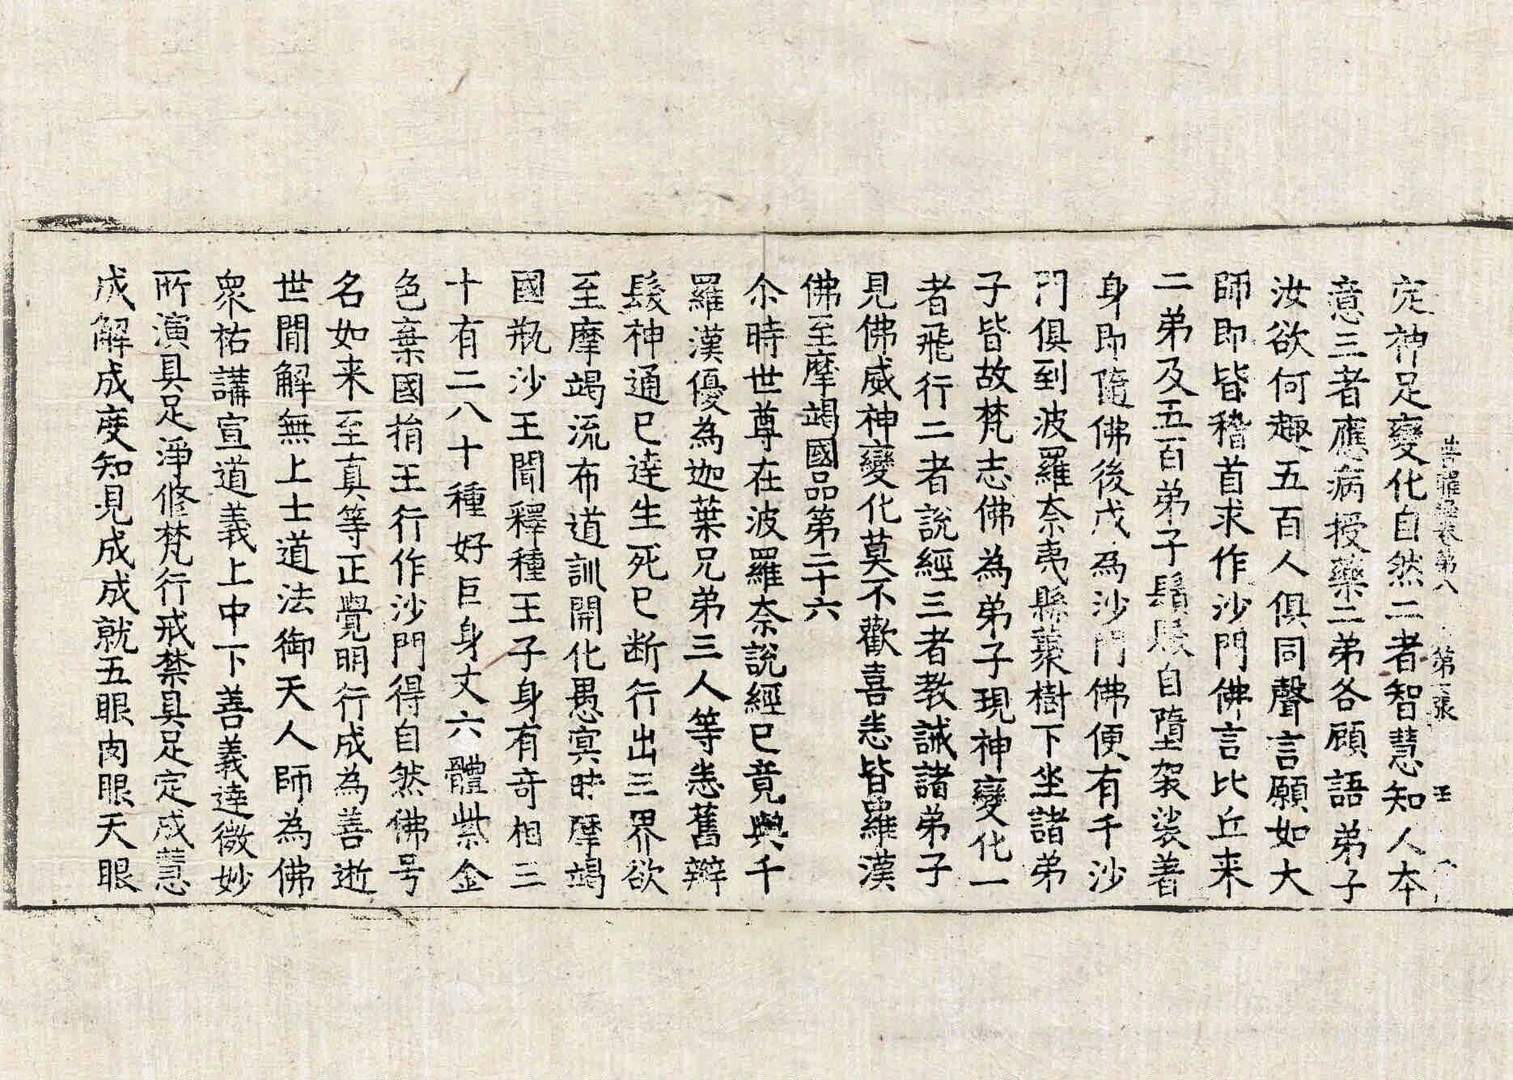 普曜經卷第八 第二張 王
定神足變化自然二者智慧知人本
意三者應病授藥二弟各顧語弟子
汝欲何趣五百人俱同聲言願如大
師即皆稽首求作沙門佛言比丘来
二弟及五百弟子鬚髮自墮袈裟著
身即隨佛後成為沙門佛便有千沙
門俱到波羅奈夷縣蘽樹下坐諸弟
子皆故梵志佛為弟子現神變化一
者飛行二者說經三者教誡諸弟子
見佛威神變化莫不歡喜悉皆羅漢
佛至摩竭國品第二十六
尒時世尊在波羅奈說經已竟與千
羅漢優為迦葉兄弟三人等悉舊辮
髮神通已達生死已断行出三界欲
至摩竭流布道訓開化愚冥時摩竭
國瓶沙王聞釋種王子身有奇相三
十有二八十種好巨身丈六體紫金
色棄國捐王行作沙門得自然佛号
名如来至真等正覺明行成為善逝
世閒解無上士道法御天人師為佛
衆祐講宣道義上中下善義達微妙
所演具足淨修梵行戒禁具足定成慧
成解成度知見成成就五眼肉眼天眼